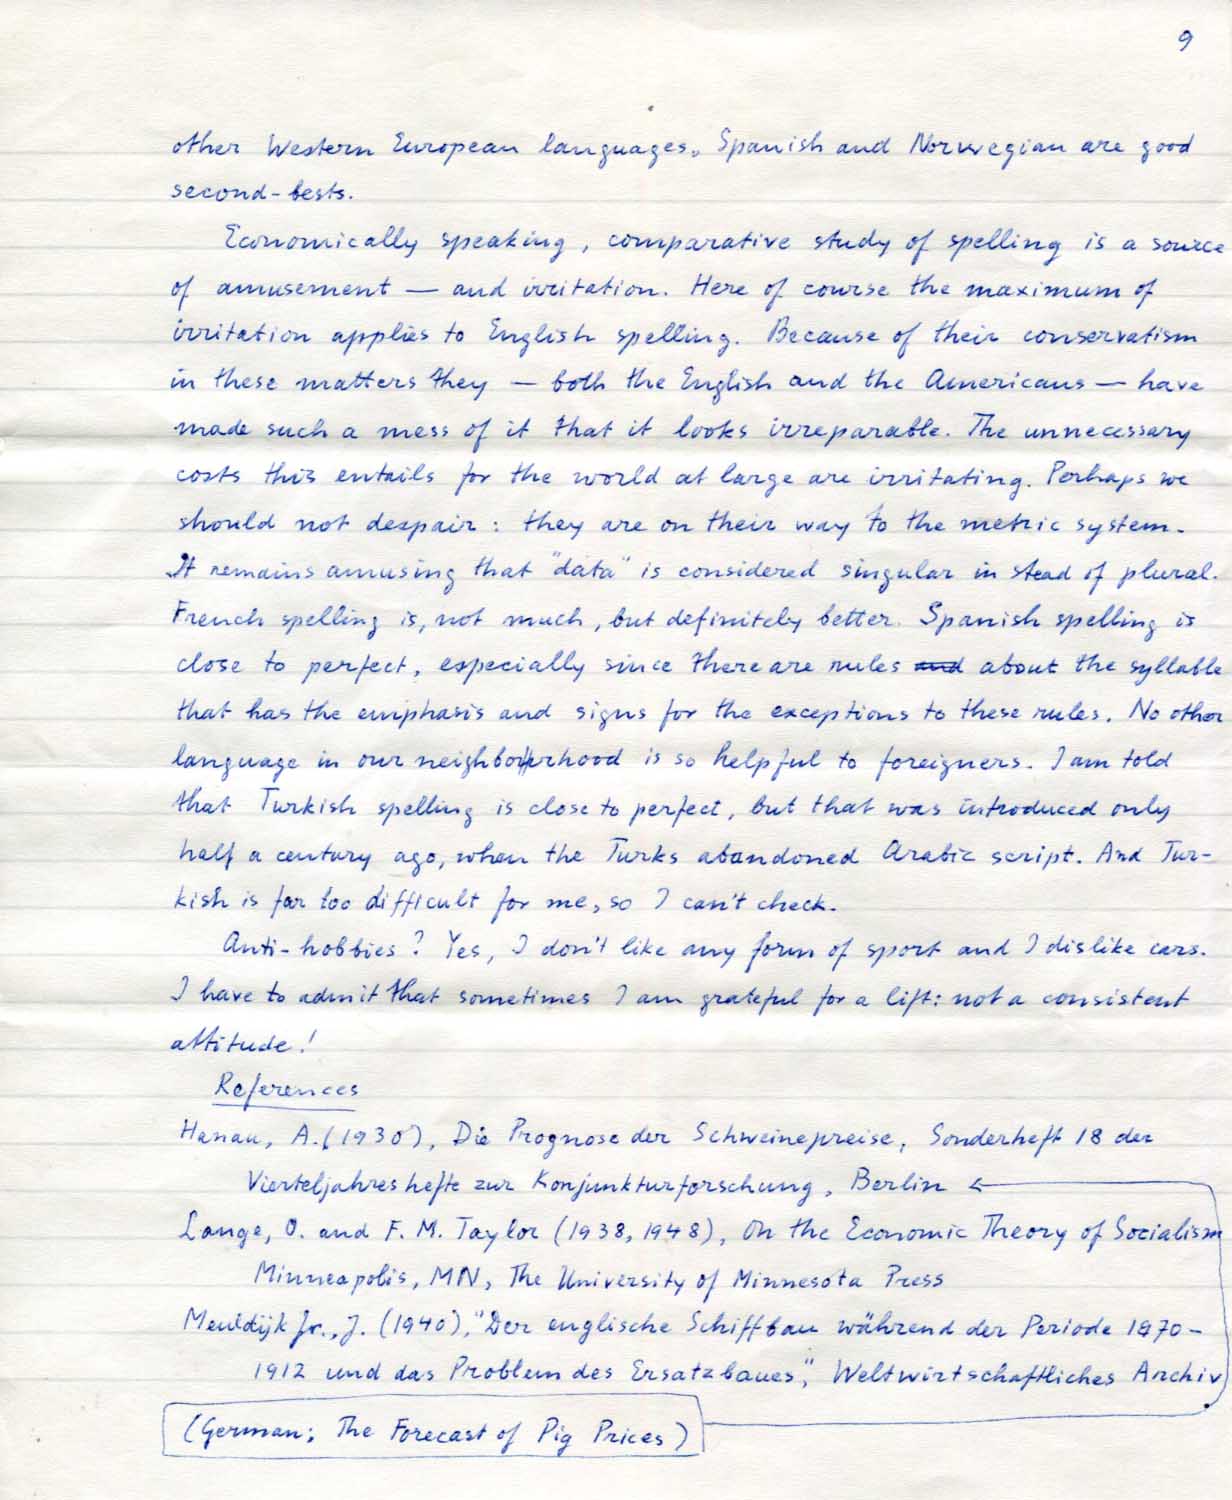 9
other Western European languages. Spanish and Norwegian are good
second-bests.
Economically speaking, comparative study of spelling is a source
of amusement — and irritation. Here of course the maximum of
irritation applies to English spelling. Because of their conservatism
in these matters they — both the English and the Americans — have
made such a mess of it that it looks irreparable. The unnecessary
costs this entails for the world at large are irritating. Perhaps we
should not despair: they are on their way to the metric system.
It remains amusing that "data" is considered singular in stead of plural.
French spelling is, not much, but definitely better. Spanish spelling is
close to perfect, especially since there are rules and about the syllable
that has the emphasis and signs for the exceptions to these rules. No other
language in our neighbourhood is so helpful to foreigners. I am told
that Turkish spelling is close to perfect, but that was introduced only
half a century ago, when the Turks abandoned Arabic script. And Tur-
kish is far too difficult for me, so I can't check.
Anti-hobbies? Yes, I don't like any form of sport and I dislike cars.
I have to admit that sometimes I am grateful for a lift: not a consistent
attitude!
References
Hanau, A. (1930), Die Prognose der Schweinepreise, Sonderheft 18 der
Vierteljahreshefte zur Konjunkturforschung, Berlin
Lange, O. and F. M. Taylor (1938, 1948), On the Economic Theory of Socialism
Minneapolis, MN, The University of Minnesota Press
Meuldijk Jr., J. (1940), "Der englische Schiffbau während der Periode 1870-
1912 und das Problem des Ersatzbaues", Weltwirtschaftliches Archiv
(German: The Forecast of Pig Prices)